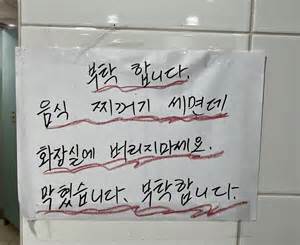 부탁 합니다.
음식 찌꺼기 세면데
화장실에 버리지마세요.
막혔습니다. 부탁합니다.